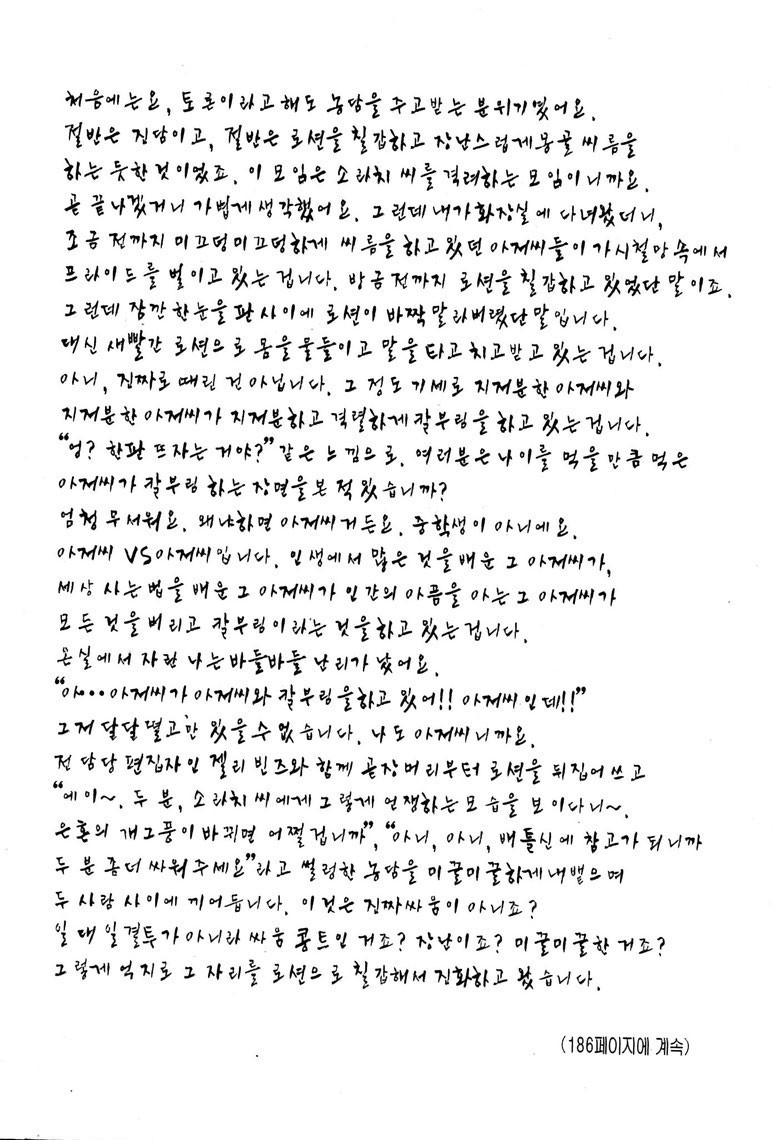 처음에는요, 토론이라고 해도 농담을 주고받는 분위기였어요.
절반은 진담이고, 절반은 로션을 칠갑하고 장난스럽게 몽골 씨름을
하는 듯한 것이었죠. 이 모임은 소라치 씨를 격려하는 모임이니까요.
곧 끝나겠거니 가볍게 생각했어요. 그런데 내가 화장실에 다녀왔더니,
조금 전까지 미끄덩미끄덩하게 씨름을 하고 있던 아저씨들이 가시철망 속에서
프라이드를 벌이고 있는 겁니다. 방금 전까지 로션을 칠갑하고 있었단 말이죠.
그런데 잠깐 한눈을 판 사이에 로션이 바짝 말라버렸단 말입니다.
대신 새빨간 로션으로 몸을 물들이고 말을 타고 치고받고 있는 겁니다.
아니, 진짜로 때린 건 아닙니다. 그 정도 기세로 지저분한 아저씨와
지저분한 아저씨가 지저분하고 격렬하게 칼부림을 하고 있는 겁니다.
"엉? 한판 뜨자는 거야?" 같은 느낌으로. 여러분은 나이를 먹을 만큼 먹은
아저씨가 칼부림 하는 장면을 본 적 있습니까?
엄청 무서워요. 왜냐하면 아저씨거든요. 중학생이 아니에요.
아저씨 VS 아저씨입니다. 인생에서 많은 것을 배운 그 아저씨가,
세상 사는 법을 배운 그 아저씨가 인간의 아픔을 아는 그 아저씨가
모든 것을 버리고 칼부림이라는 것을 하고 있는 겁니다.
온실에서 자란 나는 바들바들 난리가 났어요.
"아…아저씨가 아저씨와 칼부림을 하고 있어!! 아저씨인데!!"
그저 달달 떨고만 있을 수 없습니다. 나도 아저씨니까요.
전 담당 편집자인 젤리 빈즈와 함께 곧장 머리부터 로션을 뒤집어쓰고
"에이~. 두 분, 소라치 씨에게 그렇게 언쟁하는 모습을 보이다니~.
은혼의 개그풍이 바뀌면 어쩔 겁니까", "아니, 아니, 배틀신에 참고가 되니까
두 분 좀 더 싸워주세요"라고 썰렁한 농담을 미끌미끌하게 내뱉으며
두 사람 사이에 끼어듭니다. 이것은 진짜 싸움이 아니죠?
일 대 일 결투가 아니라 싸움 콩트인 거죠? 장난이죠? 미끌미끌한 거죠?
그렇게 억지로 그 자리를 로션으로 칠갑해서 진화하고 왔습니다.
(186페이지에 계속)